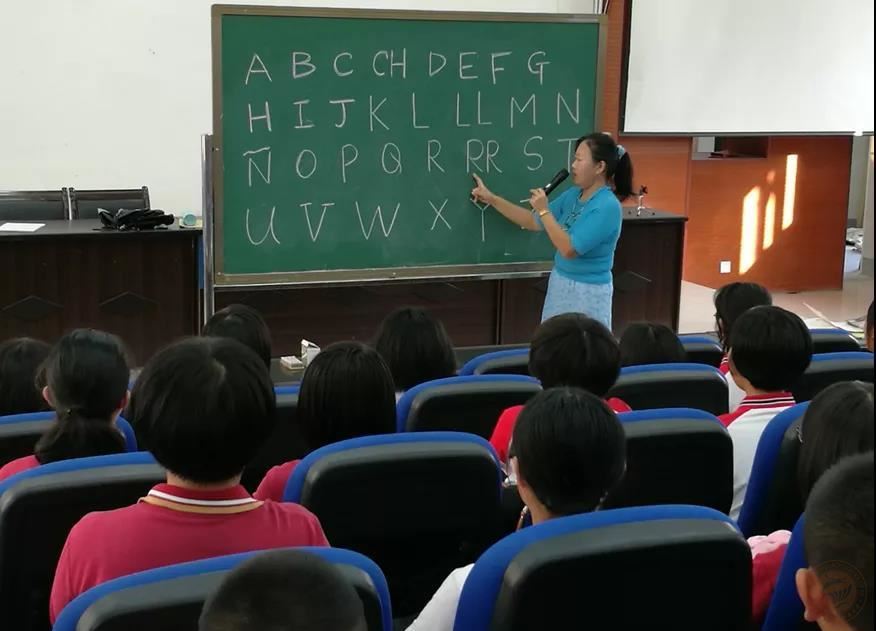 A B C CH D E F G
H I J K L LL M N
Ñ O P Q R RR S T
U V W X Y